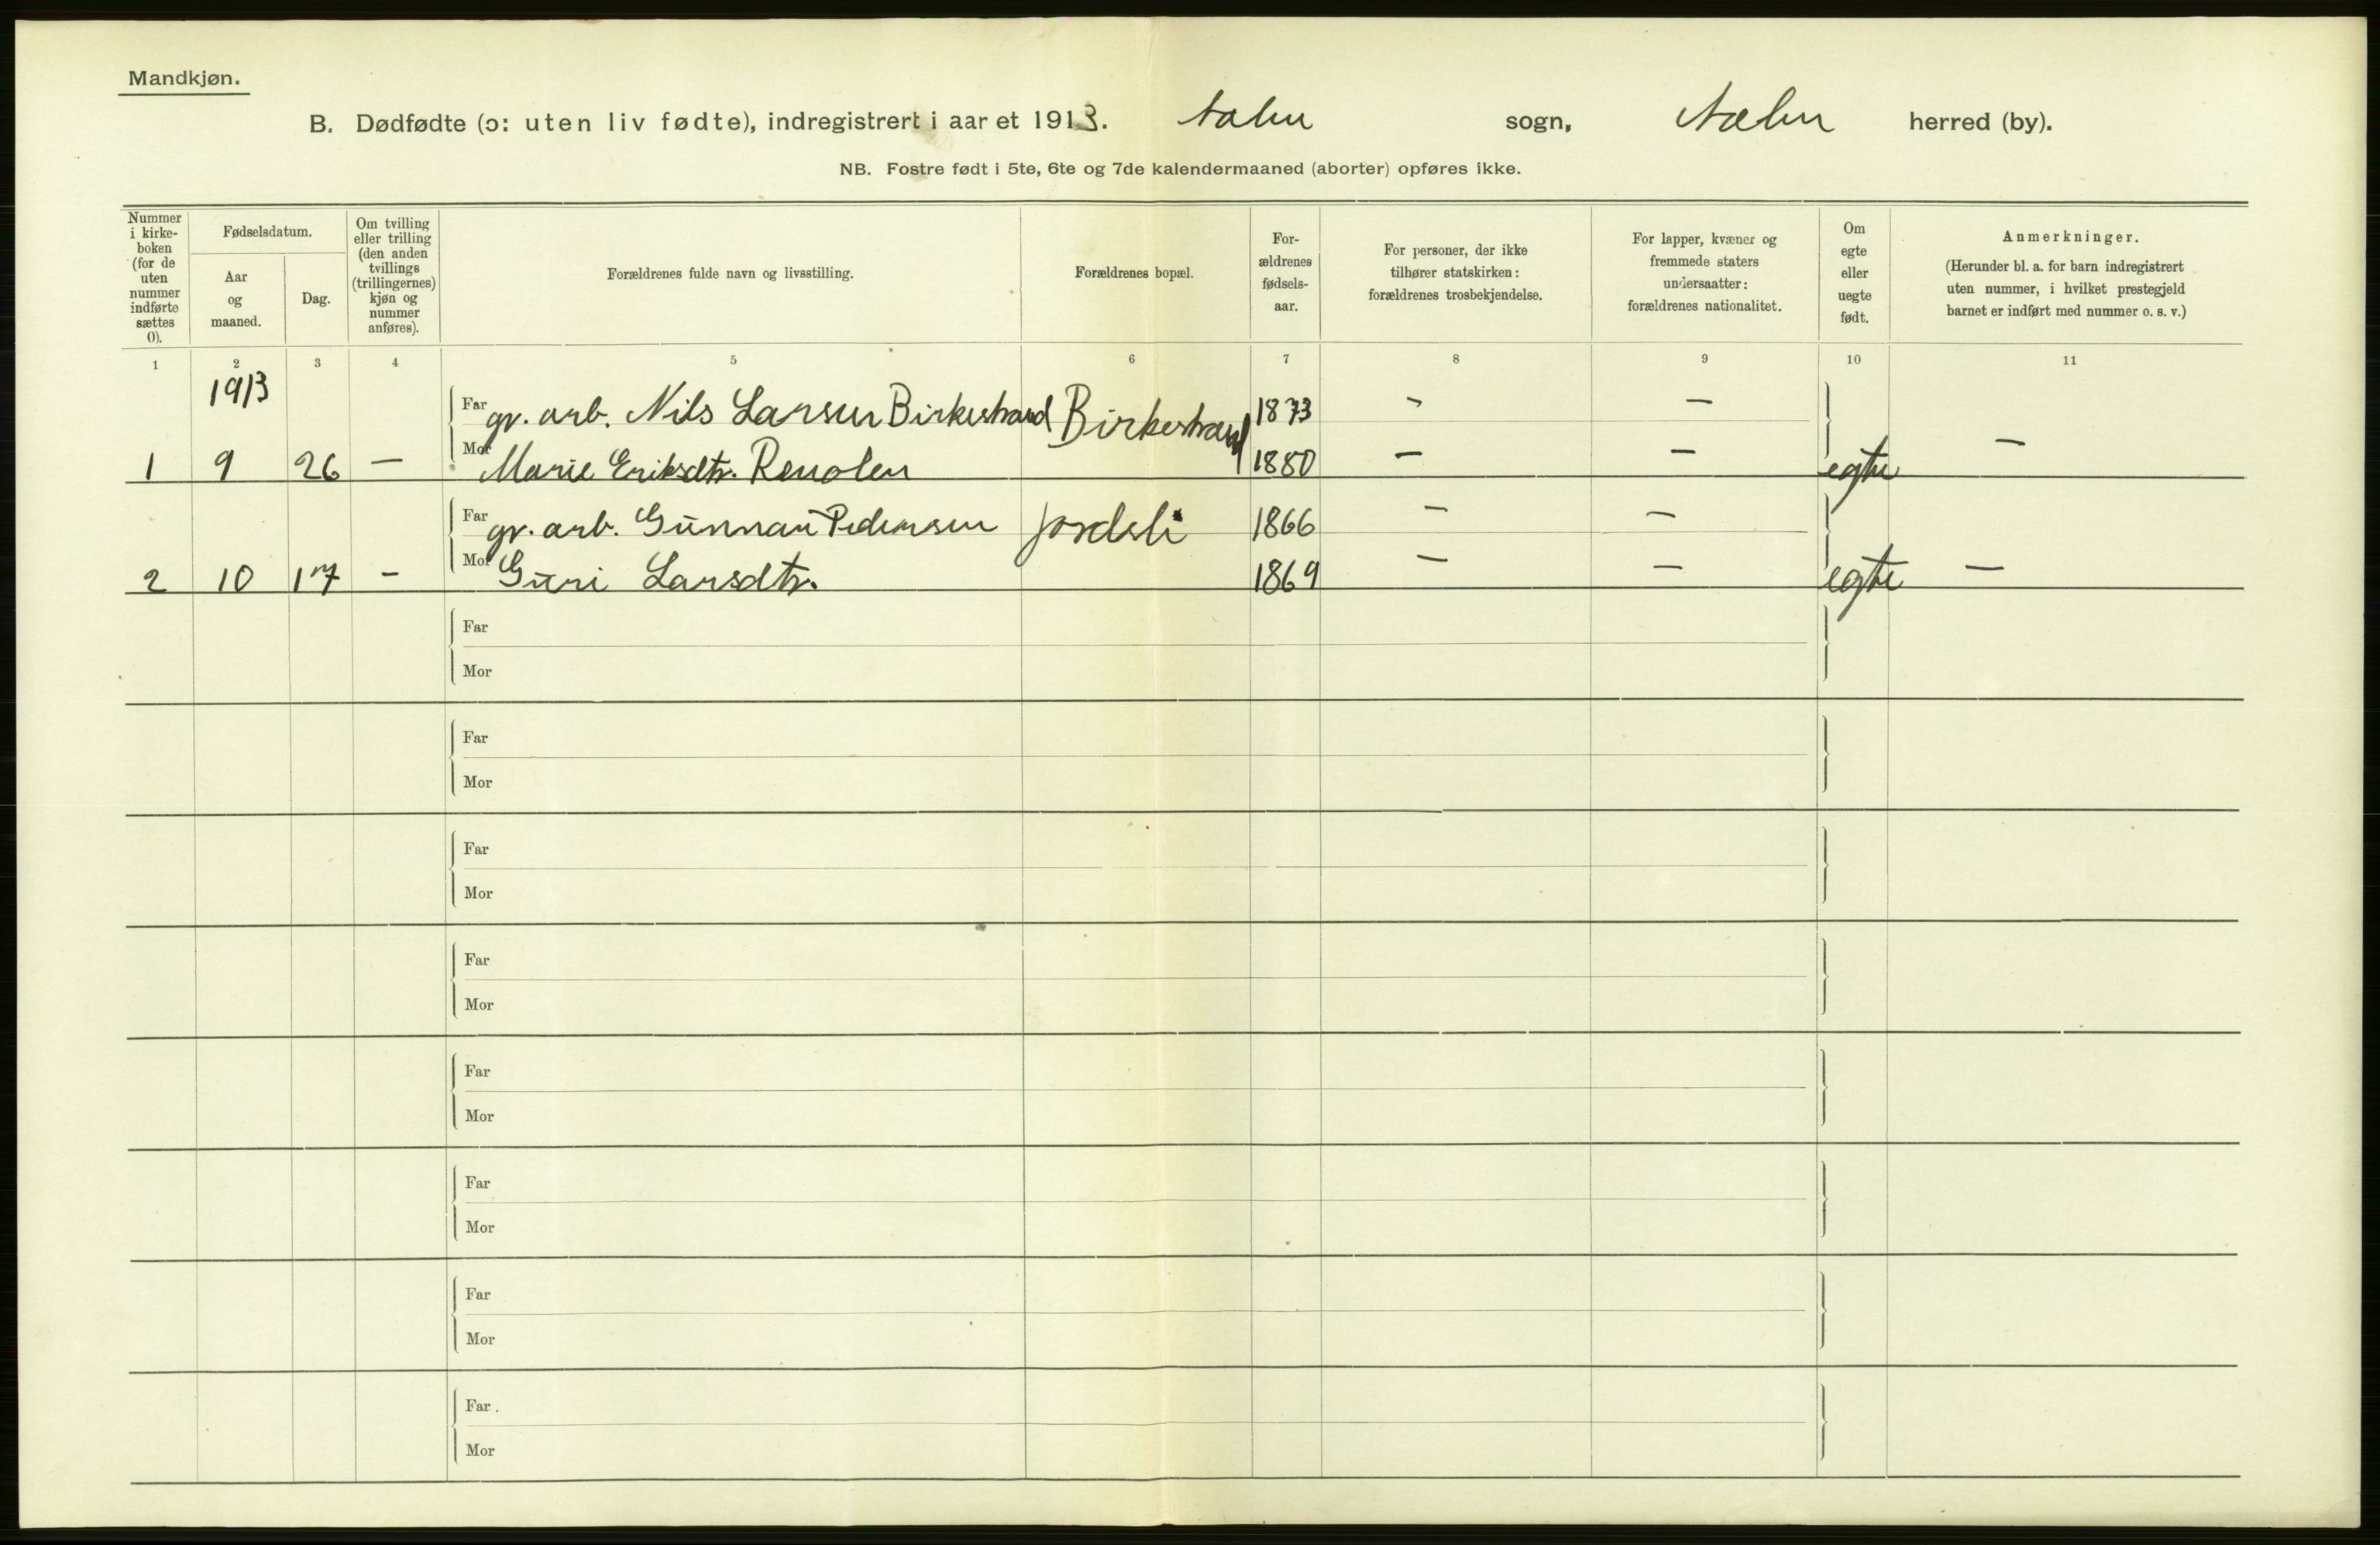 Mandkjøn.
B. Dødfødte (ɔ: uten liv fødte), indregistrert i aaret 1913. sogn, herred (by).
NB. Fostre født i 5te, 6te og 7de kalendermaaned (aborter) opføres ikke.
Nummer i kirke-boken (for de uten nummer indførte sættes 0).
Fødselsdatum.
Aar og maaned.
Dag.
Om tvilling eller trilling (den anden tvillings (trillingernes) kjøn og nummer anføres).
Forældrenes fulde navn og livsstilling.
Forældrenes bopæl.
For-ældrenes fødsels-aar.
For personer, der ikke tilhører statskirken: forældrenes trosbekjendelse.
For lapper, kvæner og fremmede staters undersaatter: forældrenes nationalitet.
Om egte eller uegte født.
Anmerkninger.
(Herunder bl. a. for barn indregistrert uten nummer, i hvilket prestegjeld barnet er indført med nummer o. s. v.)
1 2 3 4 5 6 7 8 9 10 11
1913
Far gr. arb. Nils Larsen Birkestrand Birkestrand 1873 - -
1 9 26 - Mor Marie Eriksdtr. Renolen 1880 - - egte -
Far gr. arb. Gunnar Pedersen Jordsli 1866 - -
2 10 17 - Mor Guri Larsdtr. 1869 - - egte -
Far
Mor
Far
Mor
Far
Mor
Far
Mor
Far
Mor
Far
Mor
Far
Mor
Far
Mor